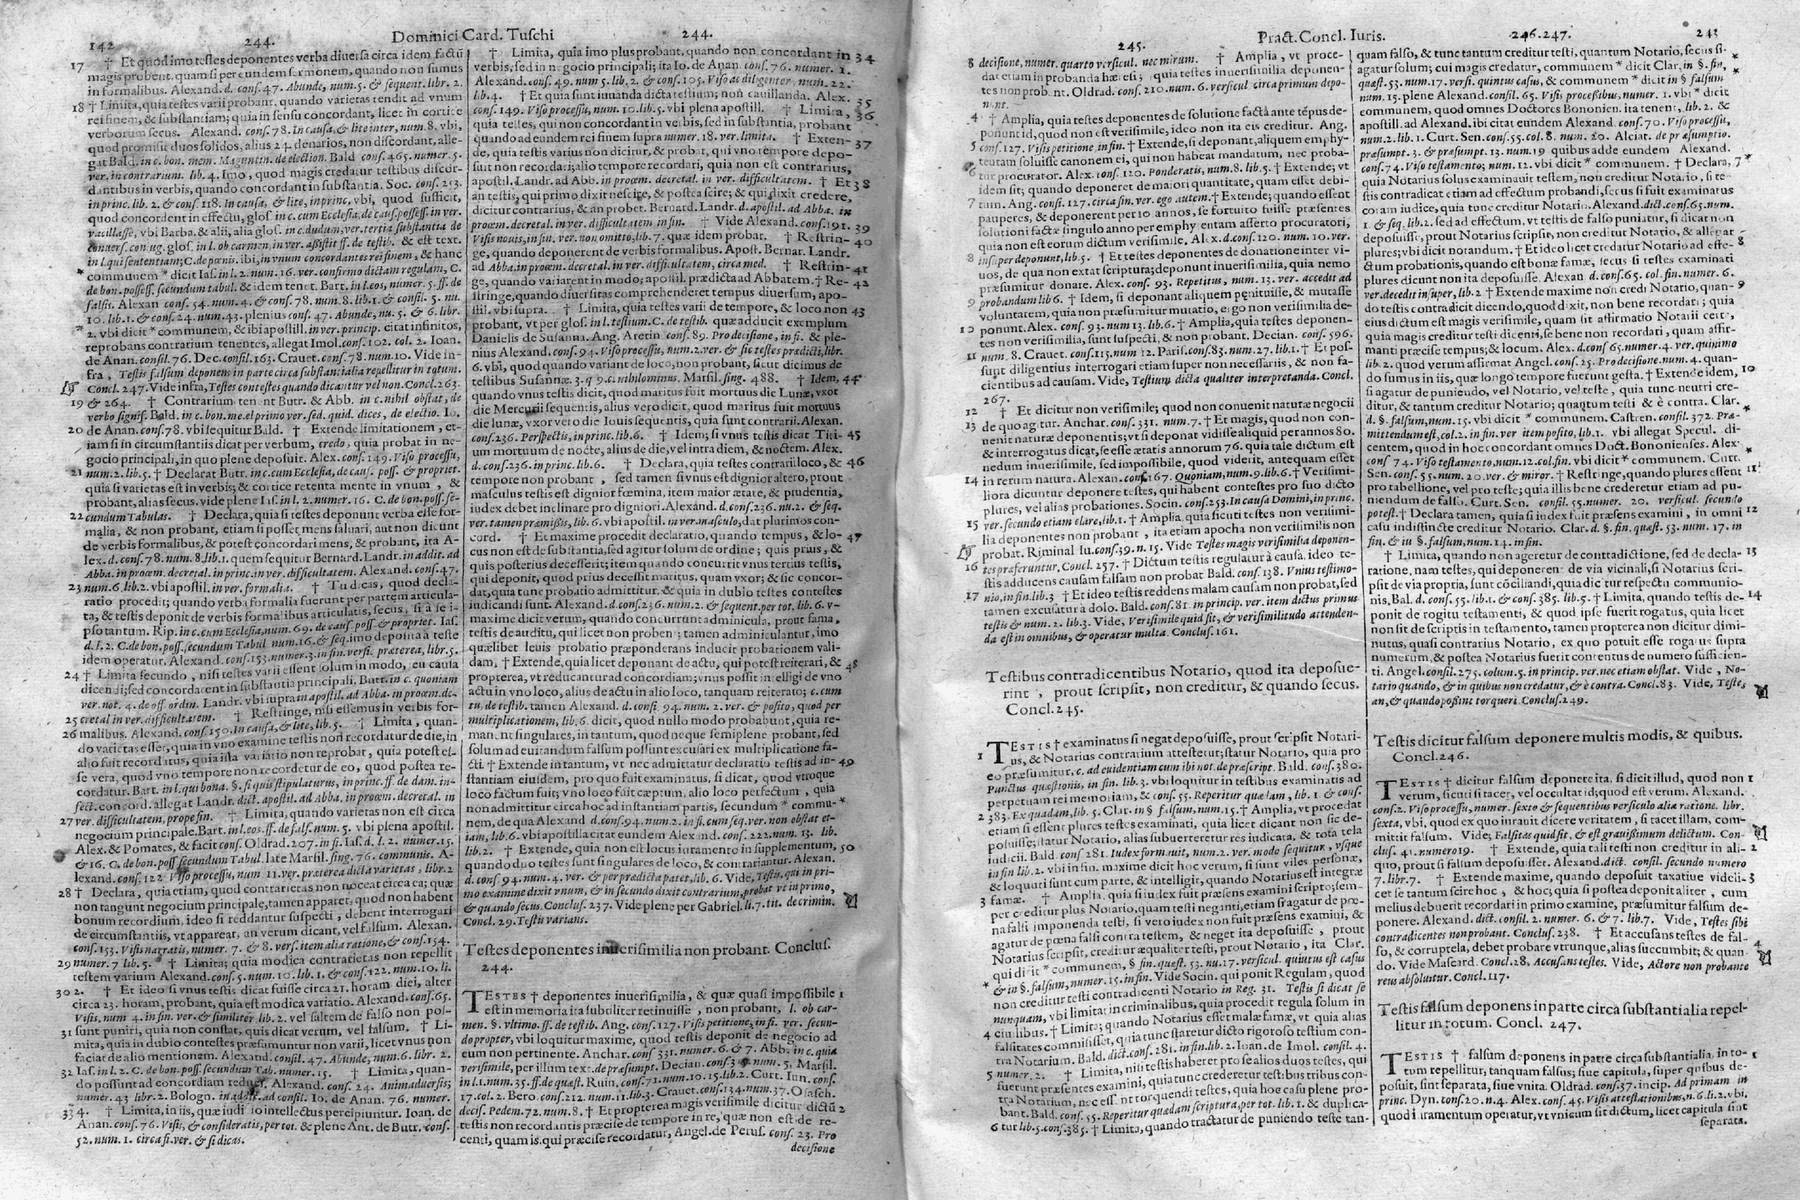 142
244.
Dominici Card. Tuschi
244.
17 † Et quod imo testes deponentes verba diuersa circa idem factū
magis probent, quam si per eundem sermonem, quando non sumus
in formalibus. Alexand. d. cons. 47. Abunde, num. 5. & sequent. libr. 2.
18 † Limita, quia testes varii probant, quando varietas tendit ad vnum
rei finem, & substantiam; quia in sensu concordant, licet in cortice
verborum secus. Alexand. cons. 78. In causa, & lite inter, num. 8. vbi,
quod promisit duos solidos, alius 24. denarios, non discordant, alle-
gat Bald. in c. bon. mem. Maguntin. de election. Bald cons. 465. numer. 5.
ver. in contrarium. lib. 4. Imo, quod magis credatur testibus discor-
dantibus in verbis, quando concordant in substantia. Soc. cons. 253.
in princ. lib. 2. & cons. 118. In causa, & lite, in princ. vbi, quod sufficit,
quod concordent in effectu, glos. in c. cum Ecclesia, de caus. possess. in ver.
19 & 264. † Contrarium tenent Butr. & Abb. in c. nihil obstat, de
verbo signif. Bald. in c. bon. me. el primo ver. sed. quid. dices, de electio. Io.
20 de Anan. cons. 78. vbi sequitur Bald. † Extende limitationem, et-
iam si in circumstantiis dicat per verbum, credo, quia probat in ne-
gocio principali, in quo plene deposuit. Alex. cons. 149. Viso processu,
21 num. 2. lib. 5. † Declarat Butr. in c. cum Ecclesia, de caus. poss. & propriet.
quasi varietas est in verbis; & cortice retenta mente in vnum, &
probant, alias secus. vide plene Ias. in l. 2. numer. 16. C. de bon. poss. se-
22 cundum Tabulas. † Declara, quia si testes deponunt verba esse for-
malia, & non probant, etiam si posset mens saluari, aut non dicunt
de verbis formalibus, & potest concordari mens, & probant, ita A-
lex. d. cons. 78. num. 8. lib. 1. quem sequitur Bernard. Landr. in addit. ad
Abba. in proœm. decretal. in princ. in ver. difficultatem. Alexand. cons. 47.
23 num. 6. lib. 2. vbi apostil. in ver. formalia. † Tu dicas, quod decla-
ratio procedit; quando verba formalia fuerunt per partem articula-
ta, & testis deponit de verbis formalibus articulatis, secus, si à se i-
24 † Limita secundo, nisi testes varii essent solum in modo, eu causa
dicendi; sed concordarent in substantia principali. Butr. in c. quoniam
25 cretal in ver. difficultatem. † Restringe, nisi essemus in verbis for-
26 malibus. Alexand. cons. 150. In causa, & lite, lib. 5. † Limita, quan-
do varietas esset, quia in vno examine testis non recordatur de die, in
27 ver. difficultatem, prope fin. † Limita, quando varietas non est circa
negocium principale. Bart. in l. eos. ff. de fals. num. 5. vbi plena apostil.
Alex. & Pomates, & facit cons. Oldrad. 207. in fi. Ias. d. l. 2. numer. 15.
28 † Declara, quia etiam, quod contrarietas non noceat circa ea; quæ
non tangunt negocium principale, tamen apparet, quod non habent
bonum recordium, ideo si reddantur suspecti, debent interrogari
de circumstantiis, vt appareat, an verum dicant, vel falsum. Alexan.
cons. 153. Visis narratis, numer. 7. & 8. vers. item alia ratione, & cons. 154.
29 numer. 7 lib. 5. † Limita; quia modica contrarietas non repellit
testem varium Alexand. cons. 5. num. 10. lib. 1. & cons. 122. num. 10. li.
30 2. † Et ideo si vnus testis dicat fuisse circa 21. horam diei, alter
circa 23. horam, probant, quia est modica variatio. Alexand. cons. 65.
Visis, num 4. in fin. ver. & similiter lib. 2. vel saltem de falso non pos-
31 sunt puniri, quia non constat, quis dicat verum, vel falsum. † Li-
mita, quia in dubio contestes præsumuntur non varii, licet vnus non
faciat de alio mentionem. Alexand. consil. 47. Abunde, num. 6. libr. 2.
32 Ias. in l. 2. C. de bon. poss. secundum Tab. numer. 15. † Limita, quan-
do possunt ad concordiam reduci, Alexand. cons. 24. Animaduersis;
33 4. † Limita, in iis, quæ iudicio intellectus percipiuntur. Ioan. de
Anan. cons. 76. Visis, & consideratis, per tot. & plene Ant. de Butr. cons.
52. num. 1. circa fi. ver. & si dicas.
† Limita, quia imo plus probant, quando non concordant in 34
verbis, sed in negocio principali; ita Io. de Anan. cons. 76. numer. 1.
Alexand. cons. 49. num 5. lib. 2. & cons. 105. Viso ac diligenter, num. 22.
lib. 4. † Et quia sunt iuuanda dicta testium; non cauillanda. Alex. 35
cons. 149. Viso processu, num. 10. lib. 5. vbi plena apostill. † Limita, 36
quia testes, qui non concordant in verbis, sed in substantia, probant
quando ad eundem rei finem supra numer. 18. ver. limita. † Exten- 37
de, quia testis varius non dicitur, & probat, qui vno tempore depo-
suit non recordari; alio tempore recordari, quia non est contrarius,
apostil. Landr. ad Abb. in proœm. decretal. in ver. difficultatem. † Et 38
an testis, qui primo dixit nescire, & postea scire; & qui dixit credere,
dicitur contrarius, & an probet. Bernard. Landr. d. apostil. ad Abba. in
proœm. decretal. in ver. difficultatem in fin. † Vide Alexand. cons. 191. 39
Visis nouis, in fin. ver. non omitto, lib. 7. quæ idem probat. † Restrin- 40
ge, quando deponerent de verbis formalibus. Apost. Bernar. Landr.
ad Abba. in proœm. decretal. in ver. difficultatem, circa med. † Restrin- 41
ge, quando variarent in modo; apostil. prædicta ad Abbatem. † Re- 42
stringe, quando diuersitas comprehenderet tempus diuersum, apo-
stil. vbi supra. † Limita, quia testes varii de tempore, & loco non 43
probant, vt per glos. in l. testium. C. de testib. quæ adducit exemplum
Danielis de Susanna. Ang. Aretin cons. 89. Pro decisione, in fi. & ple-
nius Alexand. cons. 94. Viso processu, num. 2. ver. & sic testes prædicti, libr.
6. vbi, quod quando variant de loco, non probant, sicut dicimus de
testibus Susannæ. 3. q 9. c. nihilominus. Marsil. sing. 488. † Idem, 44
quando vnus testis dixit, quod maritus fuit mortuus die Lunæ, vxor
die Mercurii sequentis, alius vero dicit, quod maritus fuit mortuus
die lunæ, vxor vero die Iouis sequentis, quia sunt contrarii. Alexan.
cons. 236. Perspectis, in princ. lib. 6. † Idem; si vnus testis dicat Titi- 45
um mortuum de nocte, alius de die, vel intra diem, & noctem. Alex.
d. cons. 236. in princ. lib. 6. † Declara, quia testes contrarii loco, & 46
tempore non probant, sed tamen si vnus est dignior altero, prout
masculus testis est dignior fœmina, item maior ætate, & prudentia,
iudex debet inclinare pro digniori. Alexand. d. cons. 236. nu. 2. & seq.
ver. tamen præmissis, lib. 6. vbi apostil. in ver. masculo, dat plurimos con-
cord. † Et maxime procedit declaratio, quando tempus, & lo- 47
cus non est de substantia, sed agitur solum de ordine; quis prius, &
quis posterius decesserit; item quando concurrit vnus tertius testis,
qui deponit, quod prius decessit maritus, quam vxor; & sic concor-
dat, quia tunc probatio admittitur, & quia in dubio testes contestes
iudicandi sunt. Alexand. d. cons. 236. num. 2. & sequent. per tot. lib. 6. v-
maxime dicit verum, quando concurrunt adminicula, prout fama,
testis de auditu, qui licet non proben; tamen adminiculantur, imo
quælibet leuis probatio præponderans inducit probationem vali-
dam, † Extende, quia licet deponant de actu, qui potest reiterari, & 48
propterea, vt reducantur ad concordiam; vnus possit intelligi de vno
actu in vno loco, alius de actu in alio loco, tanquam reiterato; c. cum
tu. de testib. tamen Alexand. d. consi 94. num. 2. ver. & posito, quod per
multiplicationem, lib. 6. dicit, quod nullo modo probabunt, quia re-
manent singulares, in tantum, quod neque semiplene probant, sed
solum ad euitandum falsum possunt excusari ex multiplicatione fa-
cti. † Extende in tantum, vt nec admittatur declaratio testis ad in- 49
stantiam eiusdem, pro quo fuit examinatus, si dicat, quod vtroque
loco factum fuit; vno loco fuit cæptum, alio loco perfectum, quia
non admittitur circa hoc ad instantiam partis, secundum * commu-
nem, de qua Alexand d. cons. 94. num. 2. in fi. cum seq. ver. non obstat et-
iam, lib. 6. vbi apostilla citat eundem Alexand. cons. 222. num. 13. lib.
lib. 2. † Extende, quia non est locus iuramento in supplementum, 50
quando duo testes sunt singulares de loco, & contrariantur. Alexan.
d. cons. 94. num. 4. ver. & per prædicta patet, lib. 6. Vide, Testis, qui in pri-
mo examine dixit vnum, & in secundo dixit contrarium, probat vt in primo,
& quando secus. Conclus. 237. Vide plene per Gabriel. li. 7. tit. de crimin.
Concl. 29. Testis varians.
Testes deponentes inuerisimilia non probant. Conclus.
244.
TESTES † deponentes inuerisimilia, & quæ quasi impossibile 1
est in memoria ita subtiliter retinuisse, non probant, l. ob car-
men. §. vltimo. ff. de testib. Ang. cons. 127. Visis petitione, in fi. ver. secun-
do propter, vbi loquitur maxime, quod testis deponit de negocio ad
eum non pertinente. Anchar. cons 331. numer. 6. & 7. Abb. in c. quia
verisimile, per illum text. de præsumpt. Decian. cons. 34. num. 5. Marsil.
in l. 1. num. 35. ff. de quæst. Ruin. cons. 71. num. 10. 15. lib. 2. Curt. Iun. cons.
17. col. 2. Bero. cons. 212. num. 11. lib. 3. Crauet. cons. 134. num. 37. Osasch.
decis. Pedem. 72. num. 8. † Et propterea magis verisimile dicitur dictū 2
testis non recordantis præcise de tempore in re, quæ non est de re-
centi, quam is, qui præcise recordatur, Angel. de Perus. cons. 23. Pro
decisione
245.
Pract. Concl. Iuris.
246. 247.
243
8 decisione, numer. quarto versicul. nec mirum. † Amplia, vt proce-
dat etiam in probanda hæresi; quia testes inuerisimilia deponen-
tes non probent. Oldrad. cons. 210. num. 6. versicul circa primum depo-
nunt.
4 † Amplia, quia testes deponentes de solutione facta ante tēpus de-
ponunt id, quod non est verisimile, ideo non ita eis creditur. Ang.
5 cons. 127. Visis petitione, in fin. † Extende, si deponant, aliquem emphy-
teutam soluisse canonem ei, qui non habeat mandatum, nec proba-
6 tur procurator. Alex. cons. 120. Ponderatis, num. 8. lib. 5. † Extende; vt
idem sit; quando deponeret de maiori quantitate, quam esset debi-
7 tum. Ang. consi. 127. circa fin. ver. ego autem. † Extende; quando essent
pauperes, & deponerent per 10 annos, se fortuito fuisse præsentes
solutioni factæ singulo anno per emphyteutam asserto procuratori,
quia non est eorum dictum verisimile. Alex. d. cons. 120. num. 10. ver.
8 insuper deponunt, lib. 5. † Et testes deponentes de donatione inter vi-
uos, de qua non extat scriptura; deponunt inuerisimilia, quia nemo
præsumitur donare. Alex. cons. 93. Repetitus, num. 13. ver. accedit ad
9 probandum lib 6. † Idem, si deponant aliquem pœnituisse, & mutasse
voluntatem, quia non præsumitur mutatio, ergo non verisimilia de-
10 ponunt. Alex. cons. 93. num 13. lib. 6. † Amplia, quia testes deponen-
tes non verisimilia, sunt suspecti, & non probant. Decian. cons. 596.
11 num. 8. Crauet. cons. 115. num 12. Paris. cons. 83. num. 27. lib. 1. † Et pos-
sunt diligentius interrogari etiam super non necessariis, & non fa-
cientibus ad causam. Vide, Testium dicta qualiter interpretanda. Concl.
267.
12 † Et dicitur non verisimile; quod non conuenit naturæ negocii
13 de quo agitur. Anchar. cons. 331. num. 7. † Et magis, quod non con-
uenit naturæ deponentis; vt si deponat vidisse aliquid per annos 80.
& interrogatus dicat, se esse ætatis annorum 76. quia tale dictum est
nedum inuerisimile, sed impossibile, quod viderit, antequam esset
14 in rerum natura. Alexan. cons. 167. Quoniam, num. 9. lib. 6. † Verisimi-
liora dicuntur deponere testes, qui habent contestes pro suo dicto
plures, vel alias probationes. Socin. cons. 253. In causa Domini, in princ.
15 ver. secundo etiam elare, lib. 1. † Amplia, quia sicuti testes non verisimi-
lia deponentes non probant, ita etiam apocha non verisimilis non
probat. Riminal Iu. cons. 39. n. 15. Vide Testes magis verisimilia deponen-
16 tes præferuntur, Concl. 257. † Dictum testis regulatur à causa, ideo te-
stis adducens causam falsam non probat Bald. cons. 138. Vnius testimo-
17 nio, in fin. lib. 3 † Et ideo testis reddens malam causam non probat, sed
tamen excusatur à dolo. Bald. cons. 81. in princip. ver. item dictus primus
testis & num. 2. lib. 3. Vide, Verisimile quid sit, & verisimilitudo attenden-
da est in omnibus, & operatur multa. Conclus. 161.
Testibus contradicentibus Notario, quod ita deposue-
rint, prout scripsit, non creditur, & quando secus.
Concl. 245.
1 TESTIS † examinatus si negat deposuisse, prout scripsit Notari-
us, & Notarius contrarium attestetur; statur Notario, quia pro
eo præsumitur, c. ad euidentiam cum ibi not. de præscript. Bald. cons. 380.
Punctus quæstionis, in fin. lib. 3. vbi loquitur in testibus examinatis ad
perpetuam rei memoriam, & cons. 55. Reperitur quædam, lib. 1 & cons.
2 383. Ex quadam, lib. 5. Clar. in § falsum, num. 15. † Amplia, vt procedat
etiam si essent plures testes examinati, quia licet dicant non sic de-
posuisse; statur Notario, alias subuerteretur res iudicata, & tota tela
iudicii. Bald cons 281. Iudex formauit, num. 2. ver. modo sequitur, vsque
in fin lib 2. vbi in fin. maxime dicit hoc verum, si sunt viles personæ,
& loquuntur sunt cum parte, & intelligit, quando Notarius est integræ
3 famæ. † Amplia, quia si iudex fuit præsens examini scripto; sem-
per creditur plus Notario, quam testi neganti, etiam si agatur de pœ-
na falsi imponenda testi, si vero iudex non fuit præsens examini, &
agatur de pœna falsi contra testem, & neget ita deposuisse, prout
Notarius scripsit, creditur æqualiter testi, prout Notario, ita Clar.
qui dicit * communem, § fin. quæst. 53. nu. 17. versicul. quintus est casus
& in §. falsum, num. 15. in fin. Vide Socin. qui ponit Regulam, quod
non creditur testi contradicenti Notario in Reg. 31. Testis si dicat se
nunquam, vbi limita; in criminalibus, quia procedit regula solum in
4 ciuilibus. † Limita; quando Notarius esset malæ famæ, vt quia alias
falsitates commisisset, quia tunc staretur dicto rigoroso testium con-
tra Notarium. Bald. dict. cons. 281. in fin. lib. 2. Ioan. de Imol. consil. 4.
5 numer. 2. † Limita, nisi testis haberet pro se alios duos testes, qui
fuerunt præsentes examini, quia tunc crederetur testibus tribus con-
tra Notarium, nec essent torquendi testes, quia hoc casu plene pro-
bant. Bald. cons. 55. Reperitur quædam scriptura, per tot. lib. 1. & duplica-
6 tur lib. 5. cons. 385. † Limita, quando tractatur de puniendo teste tan-
quam falso, & tunc tantum creditur testi, quantum Notario, secus si-
agatur solum; cui magis credatur, communem * dicit Clar. in §. fin.
quæst. 53. num. 17. versi. quintus casus, & communem * dicit in § falsum
num. 15. plene Alexand. consil. 65. Visis processibus, numer. 1. vbi * dicit
communem, quod omnes Doctores Bononien. ita tenent, lib. 2. &
apostill. ad Alexand. ibi citat eundem Alexand. cons. 70. Viso processu,
num. 2. lib. 1. Curt. Sen. cons. 55. col. 8. num. 20. Alciat. de præsumptio.
præsumpt. 3. & præsump. 13. num. 19 quibus adde eundem Alexand.
cons. 74. Viso testamento, num. 12. vbi dicit * communem. † Declara, 7
quia Notarius solus examinauit testem, non creditur Notario, si te-
stis contradicat etiam ad effectum probandi, secus si fuit examinatus
coram iudice, quia tunc creditur Notario. Alexand. dict. cons. 65. num.
1. & seq. lib. 2. sed ad effectum, vt testis de falso puniatur, si dicat non
deposuisse, prout Notarius scripsit, non creditur Notario, & allegat
plures; vbi dicit notandum. † Et ideo licet credatur Notario ad effe- 8
ctum probationis, quando est bonæ famæ, secus si testes examinati
plures dicunt non ita deposuisse. Alexan d. cons. 65. col. fin. numer. 6.
ver. de cedit insuper, lib. 2 † Extende maxime non credi Notario, quan- 9
do testis contradicit dicendo, quod dixit, non bene recordari; quia
eius dictum est magis verisimile, quam sit affirmatio Notarii certi;
quia magis creditur testi dicenti, se bene non recordari, quam affir-
manti præcise tempus; & locum. Alex. d cons 65 numer. 4. ver. quinimo
lib. 2. quod verum affirmat Angel. cons. 25. Pro decisione. num. 4. quan-
do sumus in iis, quæ longo tempore fuerunt gesta. † Extende idem, 10
si agatur de puniendo, vel Notario, vel teste, quia tunc neutri cre-
ditur, & tantum creditur Notario; quantum testi & è contra. Clar.
d. §. falsum, num. 15. vbi dicit * communem. Castren. consil. 372. Præ-
mittendum est, col. 2. in fin. ver item posito, lib. 1. vbi allegat Specul. di-
centem, quod in hoc concordant omnes Doct. Bononienses. Alex.
cons 74. Viso testamento, num. 12. col. fin. vbi dicit * communem. Curt.
Sen. cons. 55. num. 20. ver. & miror. † Restringe, quando plures essent 11
pro tabellione, vel pro teste; quia illis bene crederetur etiam ad pu-
niendum de falso. Curt. Sen. consil. 55. numer. 20. versicul. secundo
potest. † Declara tamen, quia si iudex fuit præsens examini, in omni 12
casu indistincte creditur Notario. Clar. d. §. fin. quæst. 53. num. 17. in
fin. & in §. falsum, num. 14. in fin.
† Limita, quando non ageretur de contradictione, sed de decla- 13
ratione, nam testes, qui deponerent de via vicinali, si Notarius scri-
psit de via propria, sunt cōciliandi, quia dicitur respectu communio-
nis, Bal. d. cons. 55. lib. 1. & cons. 385. lib. 5. † Limita, quando testis de- 14
ponit de rogitu testamenti, & quod ipse fuerit rogatus, quia licet
non sit de scriptis in testamento, tamen propterea non dicitur dimi-
nutus, quasi contrarius Notario, ex quo potuit esse rogatus supra
numerum, & postea Notarius fuerit contentus de numero sufficien-
ti. Angel. cons. 275. colum. 5. in princip. ver. nec etiam obstat. Vide, No-
tario quando, & in quibus non credatur, & è contra. Concl. 83. Vide, Testes,
an, & quando possint torqueri Conclus. 249.
Testis dicitur falsum deponere multis modis, & quibus.
Concl. 246.
TESTIS † dicitur falsum deponere ita. si dicit illud, quod non 1
verum, sicuti si tacet, vel occultat id; quod est verum. Alexand.
cons. 2. Viso processu, numer. sexto & sequentibus versiculo aliæ ratione. libr.
sexto, vbi, quod ex quo iurauit dicere veritatem, si tacet illam, com-
mittit falsum. Vide; Falsitas quid sit, & est grauissimum delictum. Con-
clus. 41. numero 19. † Extende, quia tali testi non creditur in ali- 2
quo, prout si falsum deposuisset. Alexand. dict. consil. secundo numero
7. libr. 7. † Extende maxime, quando deposuit taxatiue videli- 3
cet se tantum scire hoc, & hoc; quia si postea deponit aliter, cum
melius debuerit recordari in primo examine, præsumitur falsum de-
ponere. Alexand. dict. consil. 2. numer. 6. & 7. lib. 7. Vide, Testes sibi
contradicentes non probant. Conclus. 238. † Et accusans testes de fal- 4
so, & corruptela, debet probare vtrunque, alias succumbit; & quan-
do. Vide Mascard. Concl. 28. Accusans testes. Vide, Actore non probante
reus absoluitur. Concl. 117.
Testis falsum deponens in parte circa substantialia repel-
litur in totum. Concl. 247.
TESTIS † falsum deponens in parte circa substantialia in to- 1
tum repellitur, tanquam falsus; siue capitula, super quibus de-
posuit, sint separata, siue vnita. Oldrad. cons. 37. incip. Ad primam in
princ. Dyn. cons. 20. n. 4. Alex. cons. 45. Visis attestationibus, n. 6. l. 2. vbi,
quod iuramentum operatur, vt vnicum sit dictum, licet capitula sint
separata.